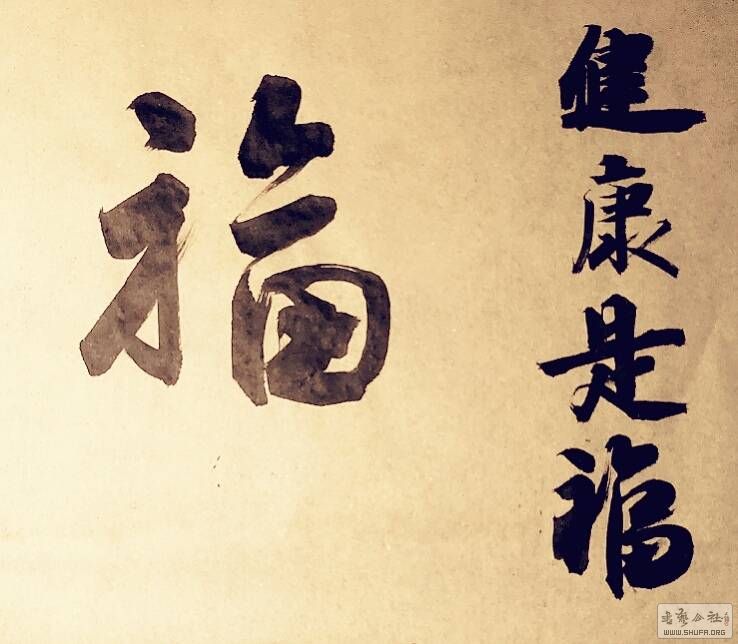 健康是福
福
書藝公社
WWW.SHUFA.ORG